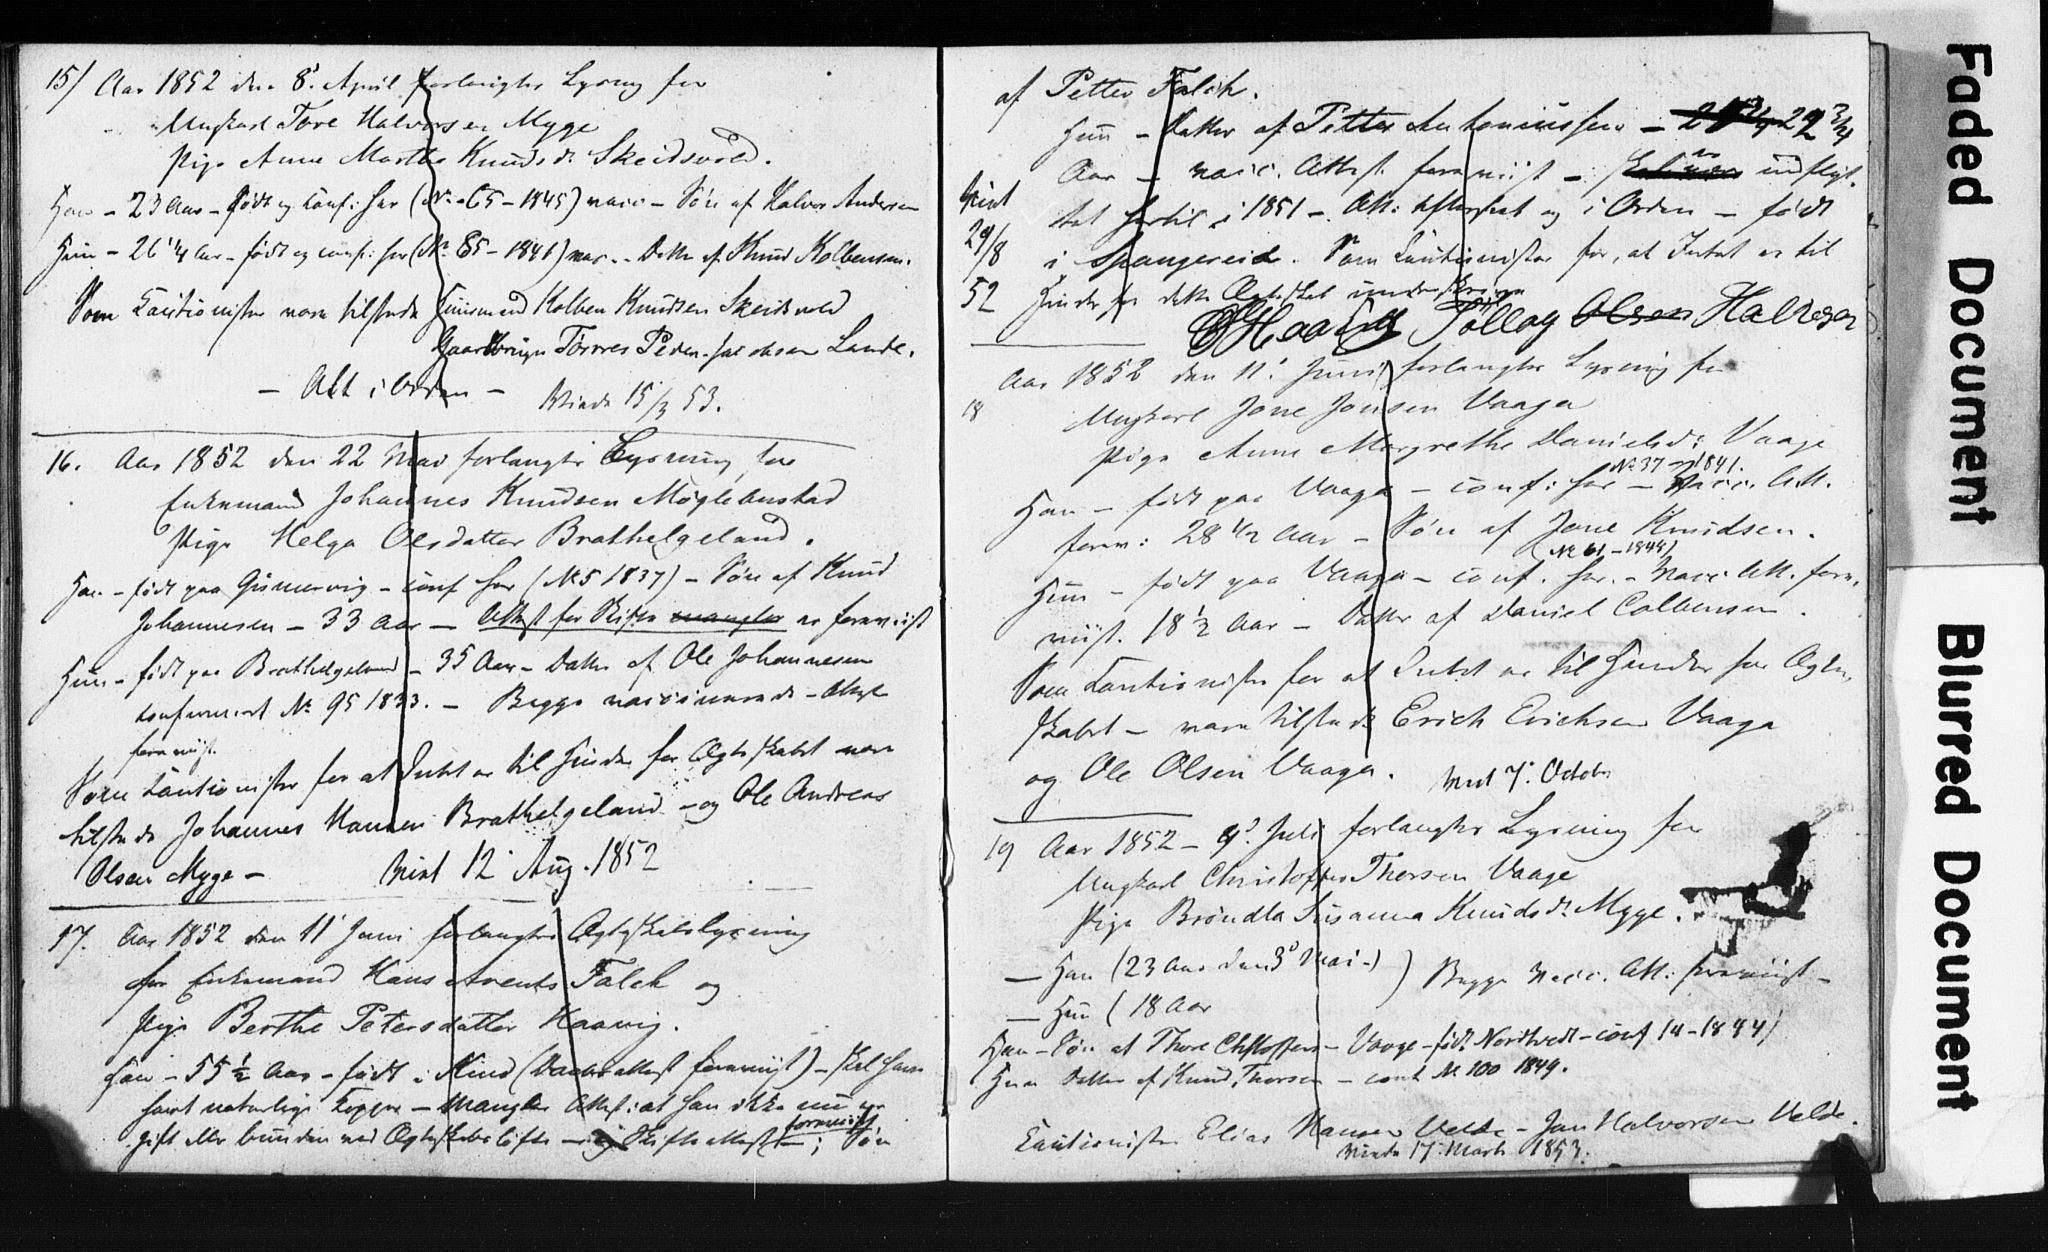 15/ Aar 1852 den 8' April forlangtes Lysning for
Ungkarl Tore Halvorsen Mygge
Pige Anne Marthe Knudsd. Skeidsvold.
Han - 23 Aar - født og conf: her (No 65 - 1845) vacc - Søn af Halvor Andersen
Hun - 26 1/4 Aar - født og conf: her (No 85 - 1841) vac. - Datter af Knud Kolbensen.
Som Cautionister vare tilstede Huusmand Kolben Knudsen Skeidsvold
Torres Peder Lande.
- Alt i Orden - Viede 15/3 53.
16. Aar 1852 den 22 Mai forlangtes Lysning for
Enkemand Johannes Knudsen Møglebustad
Pige Helga Olsdatter Brathelgeland.
Han - født paa Gismervig - conf her (No 5 1837) - Søn af Knud
Johannesen - 33 Aar - Attest for Skifte mangler er foreviist
Hun - født paa Brathelgeland - 35 Aar - Datter af Ole Johannesen
confirmeret No 95 1833. - Begge vaccinerede - Attest
foreviist.
Som Cautionister for at Intet er til Hinder for Ægteskabet vare
tilstede Johannes Hansen Brathelgeland - og Ole Andreas
Olsen Mygge - Viet 12 Aug. 1852
17. Aar 1852 den 11' Juni forlangtes Ægteskabslysning
for Enkemand Hans Arents Falch og
Pige Berthe Petersdatter Haavig.
Han - 55 1/2 Aar - født i (Daabsattest foreviist) - skal have
havt naturlige Kopper - Mangler Attest: at han ikke nu er
gift eller bunden ved Ægteskabsløfte - Skifteattest foreviist - ; Søn
af Petter Falch.
Hun - Datter af Petter Antoniussen - 22 3/4
Aar - vacc. Attest. foreviist - indflyt-
tet hertil i 1851 - Att: efterseet og i Orden - født
i Spangereid. Som Cautionister for, at Intet er til
Hinder for dette Ægteskab underskrive
Viet
29/8
52
Tollag Olsen Halresen
18
Aar 1852 den 11' Juni forlangtes Lysning for
Ungkarl Jone Jonsen Vaage
Pige Anne Margrethe Danielsd: Vaage
No 37 - 1841.
Han - født paa Vaage - conf: her - Vacc. Att.
forev: 28 1/2 Aar - Søn af Jone Knudsen.
(No 61 - 1848)
Hun - født paa Vaage - conf. her. - Vacc. Att. fore-
viist. 18 1/2 Aar - Datter af Daniel Colbensen.
Som Cautionister for at Intet er til Hinder for Ægte-
skabet - vare tilstede Erich Erichsen Vaage
og Ole Olsen Vaage. Viet 7' Octobr
19 Aar 1852 - 9' Juli forlangtes Lysning for
Ungkarl Christoffer Thorsen Vaage
Pige Brøndla Susanna Knudsd. Mygge.
- Han (23 Aar den 3' Mai -)
- Hun (18 Aar
) Begge Vacc. Att: foreviist -
Han - Søn af Thore Chstoffers - Vaage - født Nordtvedt - conf 14 - 1844)
Hun Datter af Knud Thorsen - conf No 100 1849.
Cautionister Elias Hansen Velde - Jan Halvorsen Velde.
Viede 17' Marts 1853.
Faded Document
Blurred Document